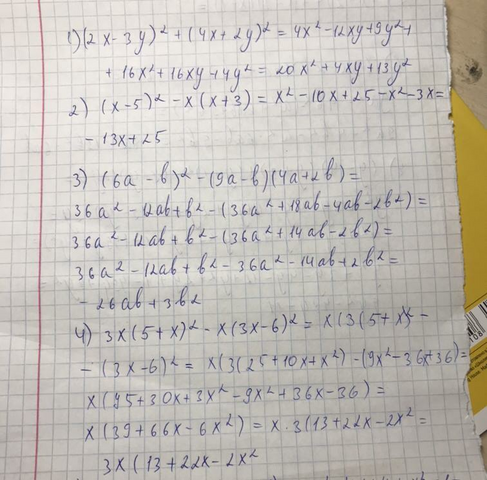 1) (2x - 3y)² + (4x + 2y)² = 4x² - 12xy + 9y² +
+ 16x² + 16xy + 4y² = 20x² + 4xy + 13y²
2) (x - 5)² - x (x + 3) = x² - 10x + 25 - x² - 3x =
- 13x + 25
3) (6a - b)² - (9a - b)(4a + 2b) =
36a² - 12ab + b² - (36a² + 18ab - 4ab - 2b²) =
36a² - 12ab + b² - (36a² + 14ab - 2b²) =
36a² - 12ab + b² - 36a² - 14ab + 2b² =
- 26ab + 3b²
4) 3x (5 + x)² - x (3x - 6)² = x (3 (5 + x)² -
- (3x - 6)² = x (3(25 + 10x + x²) - (9x² - 36x + 36) =
x (75 + 30x + 3x² - 9x² + 36x - 36) =
x (39 + 66x - 6x²) = x · 3 (13 + 22x - 2x² =
3x (13 + 22x - 2x²